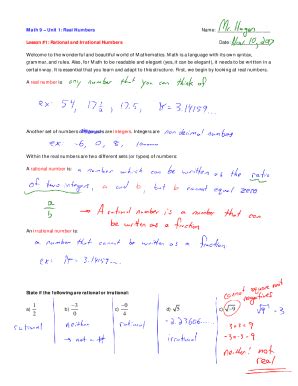 Math 9 – Unit 1: Real Numbers Name: Mr. Hagen
Lesson #1: Rational and Irrational Numbers Date: Nov. 10,
Welcome to the wonderful and beautiful world of Mathematics. Math is a language with its own syntax,
grammar, and rules. Also, for Math to be readable and elegant (yes, it can be elegant), it needs to be written in a
certain way. It is essential that you learn and adapt to this structure. First, we begin by looking at real numbers.
A real number is: any number that you can think of
ex: 54, 17 1/2, 17.5, π = 3.14159...
Another set of numbers are integers. Integers are non decimal numbers
ex: -6, 0, 8,
Within the real numbers are two different sets (or types) of numbers:
A rational number is: a number which can be written as the ratio
of two integers, a and b, but b cannot equal zero
a/b → A rational number is a number that can
be written as a fraction
An irrational number is:
a number that cannot be written as a fraction
ex: π = 3.14159...
State if the following are rational or irrational:
cannot square root
negatives
a) 1/2 b) -3/0 c) -0/4 d) √5 e) √-9 √9 = 3
rational neither rational -2.23606... 3×3=9
→ not a # irrational -3×-3=9
neither! not
real